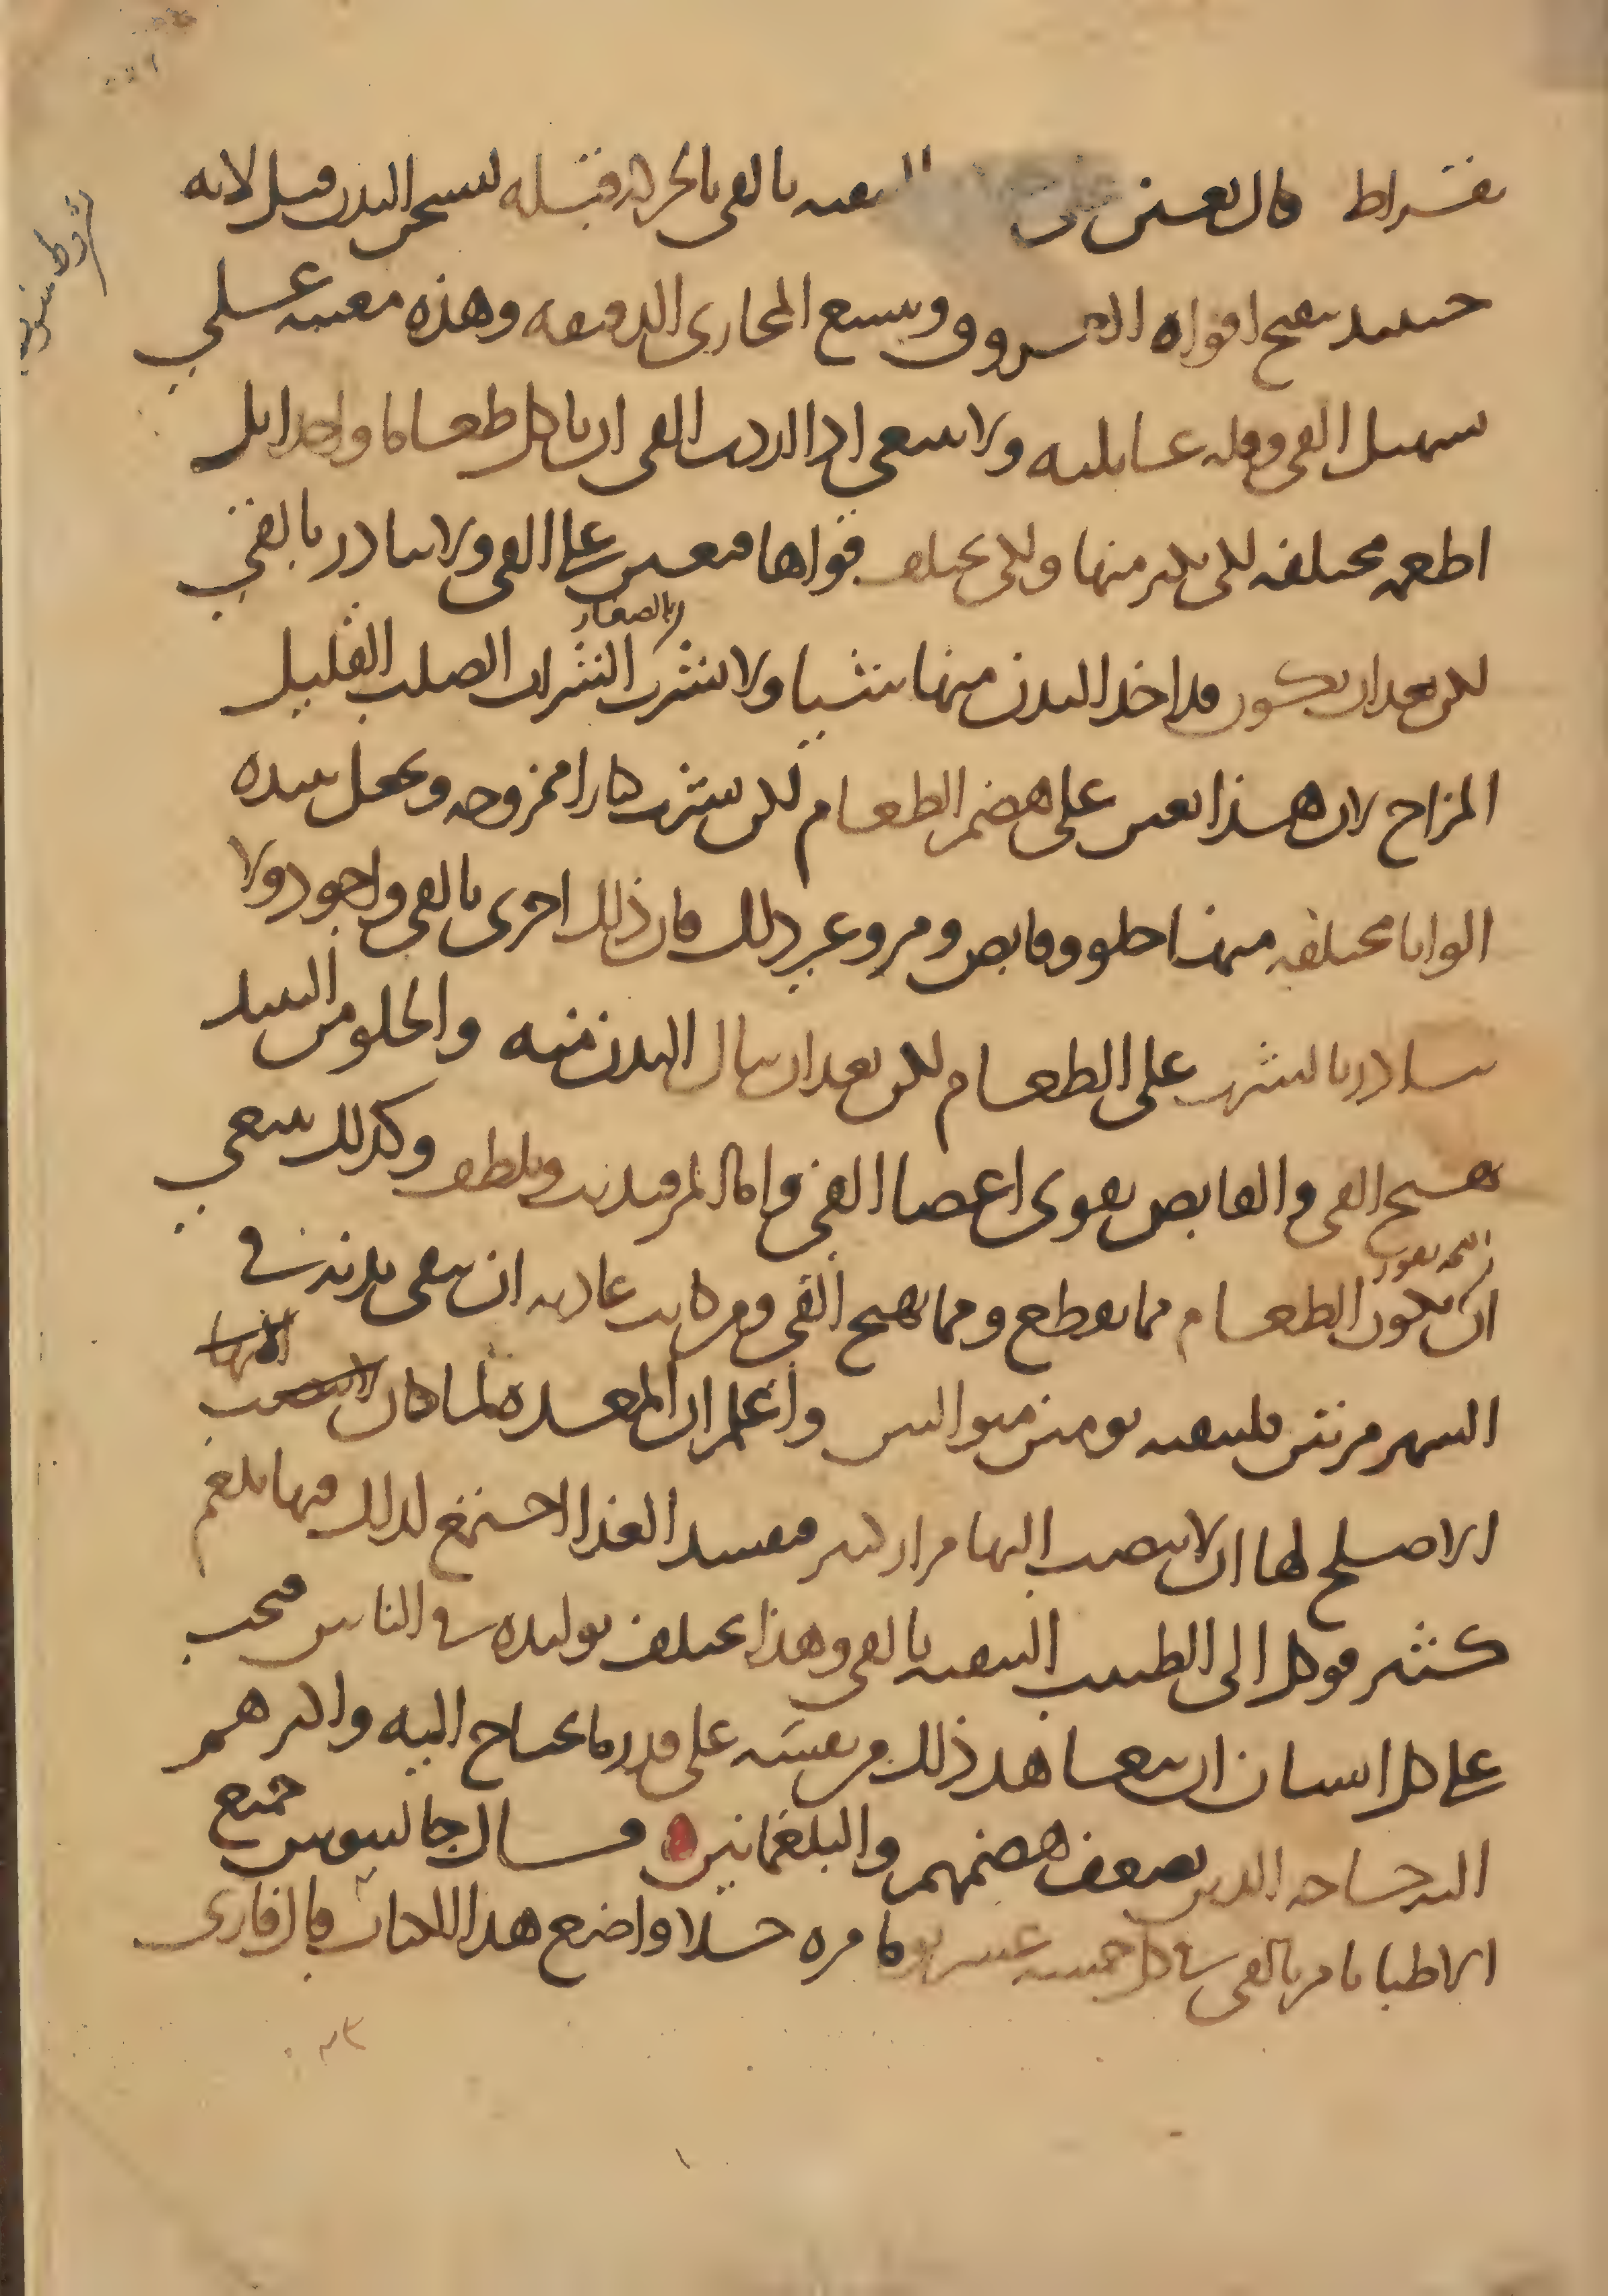 بقراط قال يعين على التنقيه بالقي بالحركه قبله ليسخن البدن قبل لانه
حينيد يفتح افواه العروق ويسع المجاري الدقيقه وهذه معينه علي
سهيل القي وقله غايلته ولا ينبغي اذا اردت القي ان ياكل طعاما واحدا بل
اطعمه مختلفه لكي يكثر منها ولكي يختلف قواها فتعين على القي ولا يبادر بالقي
لكن بعد ان يكون قد اخذ البدن منها شيا ولا يشرب الشراب الصلب القليل
بالصغار
المزاج لان هذا يعين على هضم الطعام لكن يشرب كبارا ممزوجه ويجعل نبيذه
الوانا مختلفه منها حلو وقابض ومر وغير ذلك فان ذلك احرى بالقي واجود ولا
يبادر بالشرب على الطعام لكن بعد ان ينال البدن منه والحلو من النبيذ
يهيج القي والقابض يقوي اعضا القي واما المر فيذيب ويلطف وكذلك ينبغي
ان يكون الطعام مما يقطع ومما يهيج القي ومن كانت عادته ان ينقي بدنه في
الشهر مرتين فلينقيه يومين متواليين واعلم ان المعده لما كان
الاصلح لها ان لا ينصب اليها مرار كثير فيفسد الغذا اجتمع لذلك فيها بلغم
كثير فوكل الى الطبيب التنقيه بالقي وهذا يختلف توليده في الناس فيجب
على كل انسان ان يتعاهد ذلك من نفسه على قدر ما يحتاج اليه واكثرهم
اليه حاجه الذين يضعف هضمهم والبلغمانيين قال جالينوس جميع
الاطبا يامر بالقي في كل خمسه عشر يوما مره خلا واضع هذا الكتاب فانا قد نرى